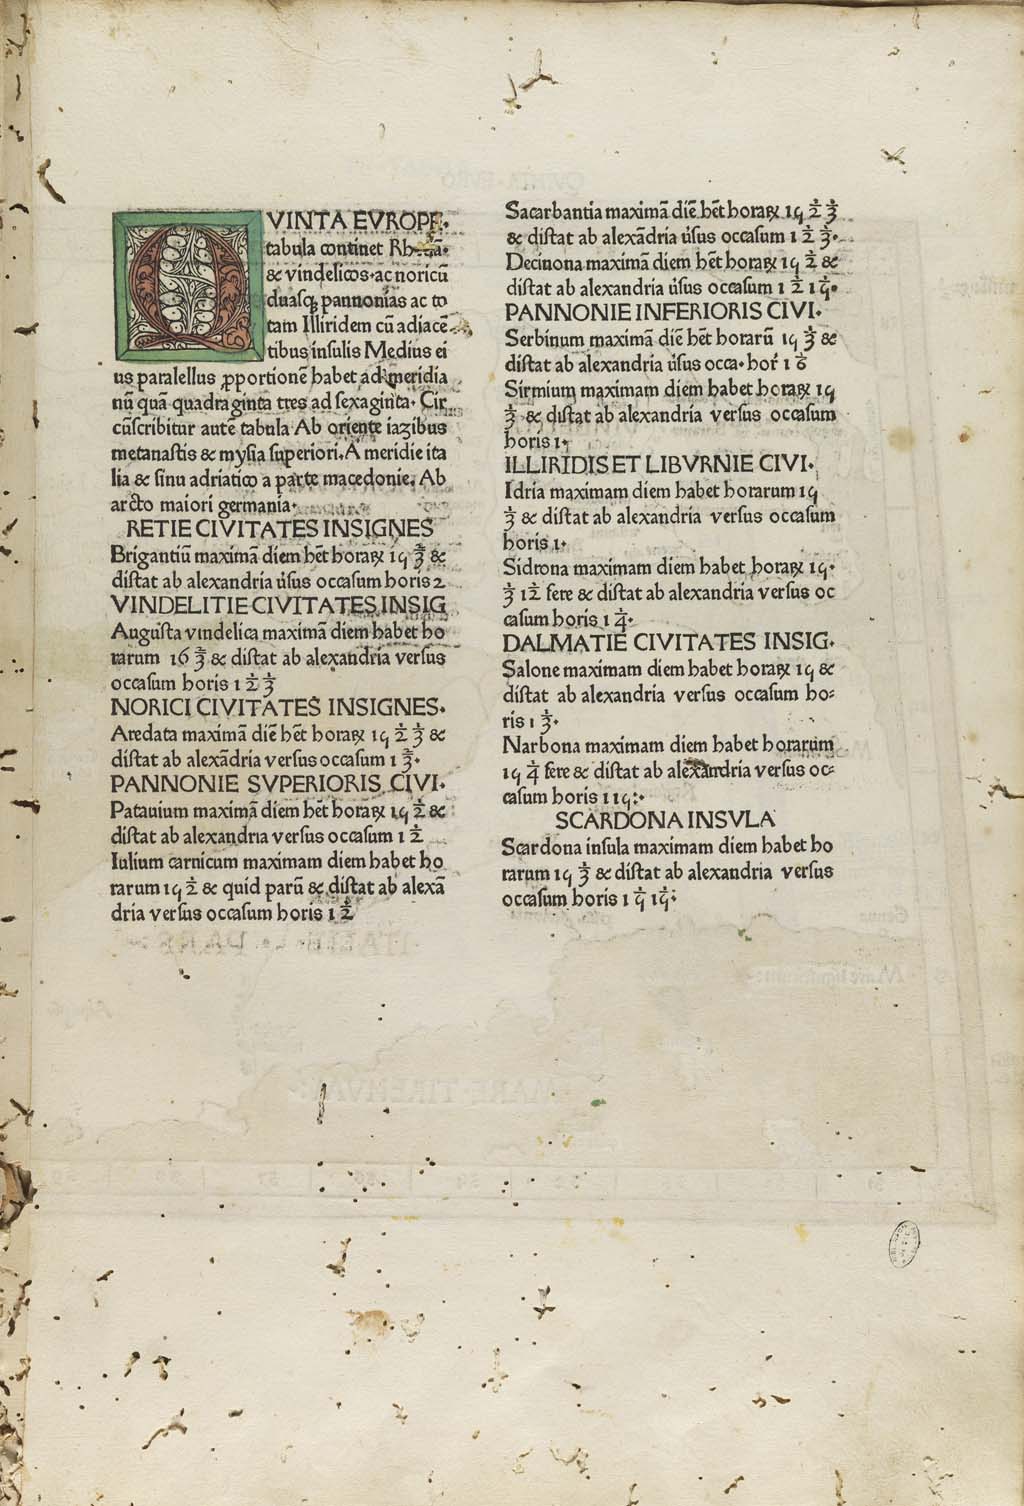 QVINTA EVROPE·
tabula continet
& vindelicos·ac noricū
duasq; pannonias ac to
tam Illiridem cū adiacē
tibus insulis Medius ei
us paralellus ꝓportionē habet ad meridia
nū quā quadraginta tres ad sexaginta· Cir
cūscribitur autē tabula Ab oriente iazibus
metanastis & mysia superiori. A meridie ita
lia & sinu adriatico a parte macedonie. Ab
arcto maiori germania·
RETIE CIVITATES INSIGNES
Brigantiū maximā diem hēt horaꝝ 19 2/3 &
distat ab alexandria úsus occasum horis 2
VINDELITIE CIVITATES INSIG
Augusta vindelica maximā diem habet ho
rarum 16 2/3 & distat ab alexandria versus
occasum horis 1 1/2 1/3
NORICI CIVITATES INSIGNES·
Aredata maximā diē hēt horaꝝ 19 1/2 1/3 &
distat ab alexādria versus occasum 1 2/3·
PANNONIE SVPERIORIS CIVI·
Patauium maximā diem hēt horaꝝ 19 1/2 &
distat ab alexandria versus occasum 1 1/2
Iulium carnicum maximam diem habet ho
rarum 19 1/2 & quid parū & distat ab alexā
dria versus occasum horis 1 1/2
Sacarbantia maximā diē hēt horaꝝ 19 1/2 1/3
& distat ab alexādria úsus occasum 1 1/2 1/3·
Decinona maximā diem hēt horaꝝ 19 1/2 &
distat ab alexandria úsus occasum 1 1/2 1/9·
PANNONIE INFERIORIS CIVI·
Serbinum maximā diē hēt horarū 19 1/3 &
distat ab alexandria úsus occa· hor 1 1/6
Sirmium maximam diem habet horaꝝ 19
1/3 & distat ab alexandria versus occasum
horis 1·
ILLIRIDIS ET LIBVRNIE CIVI·
Idria maximam diem habet horarum 19
1/3 & distat ab alexandria versus occasum
horis 1·
Sidrona maximam diem habet horaꝝ 19·
1/3 1/12 fere & distat ab alexandria versus oc
casum horis 1 1/4·
DALMATIE CIVITATES INSIG·
Salone maximam diem habet horaꝝ 19 &
distat ab alexandria versus occasum ho⸗
ris 1 1/3·
Narbona maximam diem habet horarum
19 1/4 fere & distat ab alexandria versus oc⸗
casum horis 119:·
SCARDONA INSVLA
Scardona insula maximam diem habet ho
rarum 19 1/3 & distat ab alexandria versus
occasum horis 1 1/9 1/19: